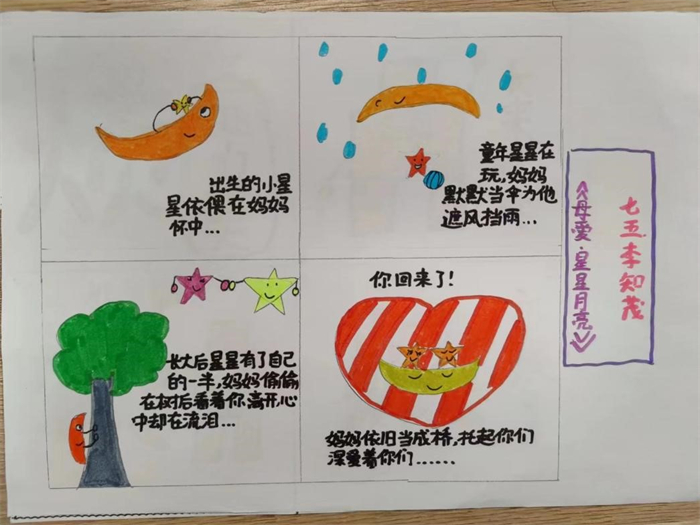 出生的小星
星依偎在妈妈
怀中...
童年星星在
玩,妈妈
默默当伞为他
遮风挡雨...
长大后星星有了自己
的一半,妈妈偷偷
在树后看着你离开,心
中却在流泪...
你回来了!
妈妈依旧当成桥,托起你们
深爱着你们......
七五李知茂
《母爱·星星月亮》